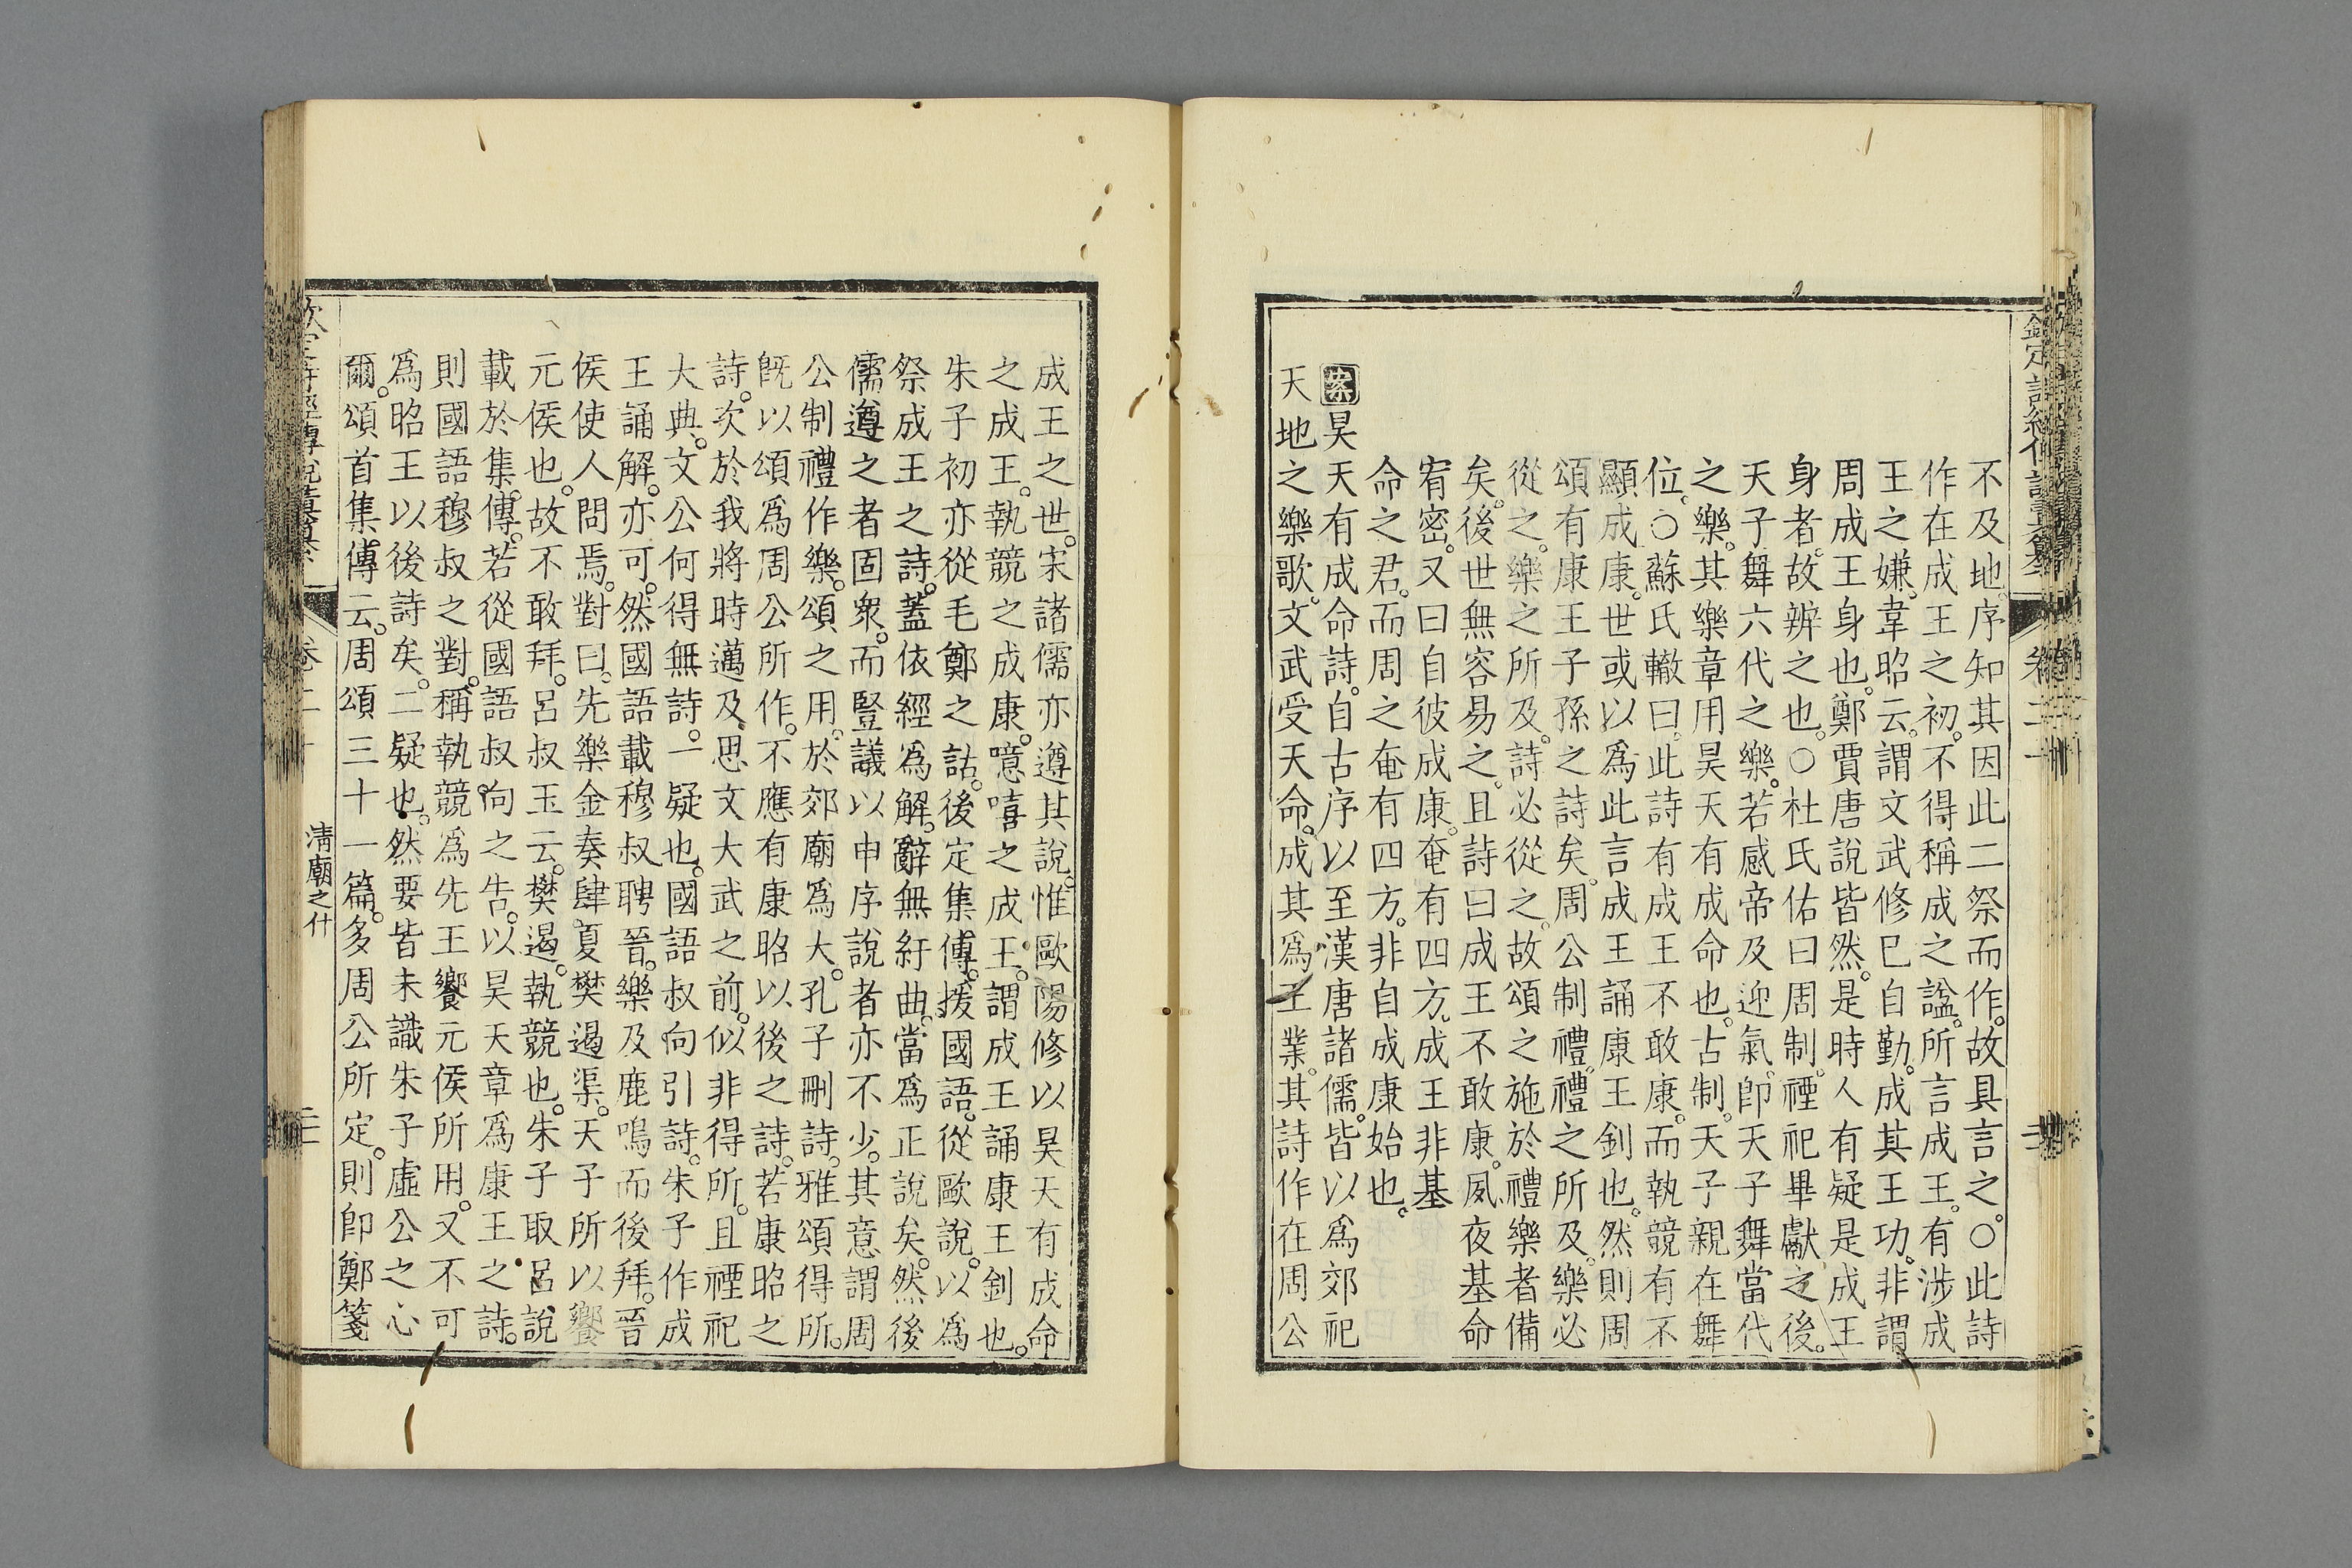 不及地。序知其因此二祭而作。故具言之。○此詩
作在成王之初。不得稱成之諡。所言成王。有涉成
王之嫌。韋昭云。謂文武修己自勤。成其王功。非謂
周成王身也。鄭賈唐說皆然。是時人有疑是成王
身者。故辨之也。○杜氏佑曰。周制。禋祀畢獻之後。
天子舞六代之樂。若感帝及迎氣。卽天子舞當代
之樂。其樂章用昊天有成命也。古制。天子親在舞
位。○蘇氏轍曰。此詩有成王不敢康。而執競有不
顯成康。世或以爲此言成王誦康王釗也。然則周
頌有康王子孫之詩矣。周公制禮。禮之所及。樂必
從之。樂之所及。詩必從之。故頌之施於禮樂者備
矣。後世無容易之。且詩曰成王不敢康。夙夜基命
宥密。又曰自彼成康。奄有四方。成王非基
命之君。而周之奄有四方。非自成康始也。
案昊天有成命詩。自古序以至漢唐諸儒。皆以爲郊祀
天地之樂歌。文武受天命。成其爲王業。其詩作在周公
成王之世。宋諸儒亦遵其說。惟歐陽修以昊天有成命
之成王。執競之成康。噫嘻之成王。謂成王誦康王釗也。
朱子初亦從毛鄭之詁。後定集傳。援國語。從歐說。以爲
祭成王之詩。蓋依經爲解。辭無紆曲。當爲正說矣。然後
儒遵之者固衆。而豎議以申序說者亦不少。其意謂周
公制禮作樂。頌之用。於郊廟爲大。孔子刪詩。雅頌得所。
旣以頌爲周公所作。不應有康昭以後之詩。若康昭之
詩。次於我將時邁及思文大武之前。似非得所。且禋祀
大典。文公何得無詩。一疑也。國語叔向引詩。朱子作成
王誦解。亦可。然國語載穆叔聘晉。樂及鹿鳴而後拜。晉
侯使人問焉。對曰。先樂金奏肆夏樊遏渠。天子所以饗
元侯也。故不敢拜。呂叔玉云。樊遏。執競也。朱子取呂說
載於集傳。若從國語叔向之告。以昊天章爲康王之詩。
則國語穆叔之對。稱執競爲先王饗元侯所用。又不可
爲昭王以後詩矣。二疑也。然要皆未識朱子虛公之心
爾。頌首集傳云。周頌三十一篇。多周公所定。則卽鄭箋
清廟之什